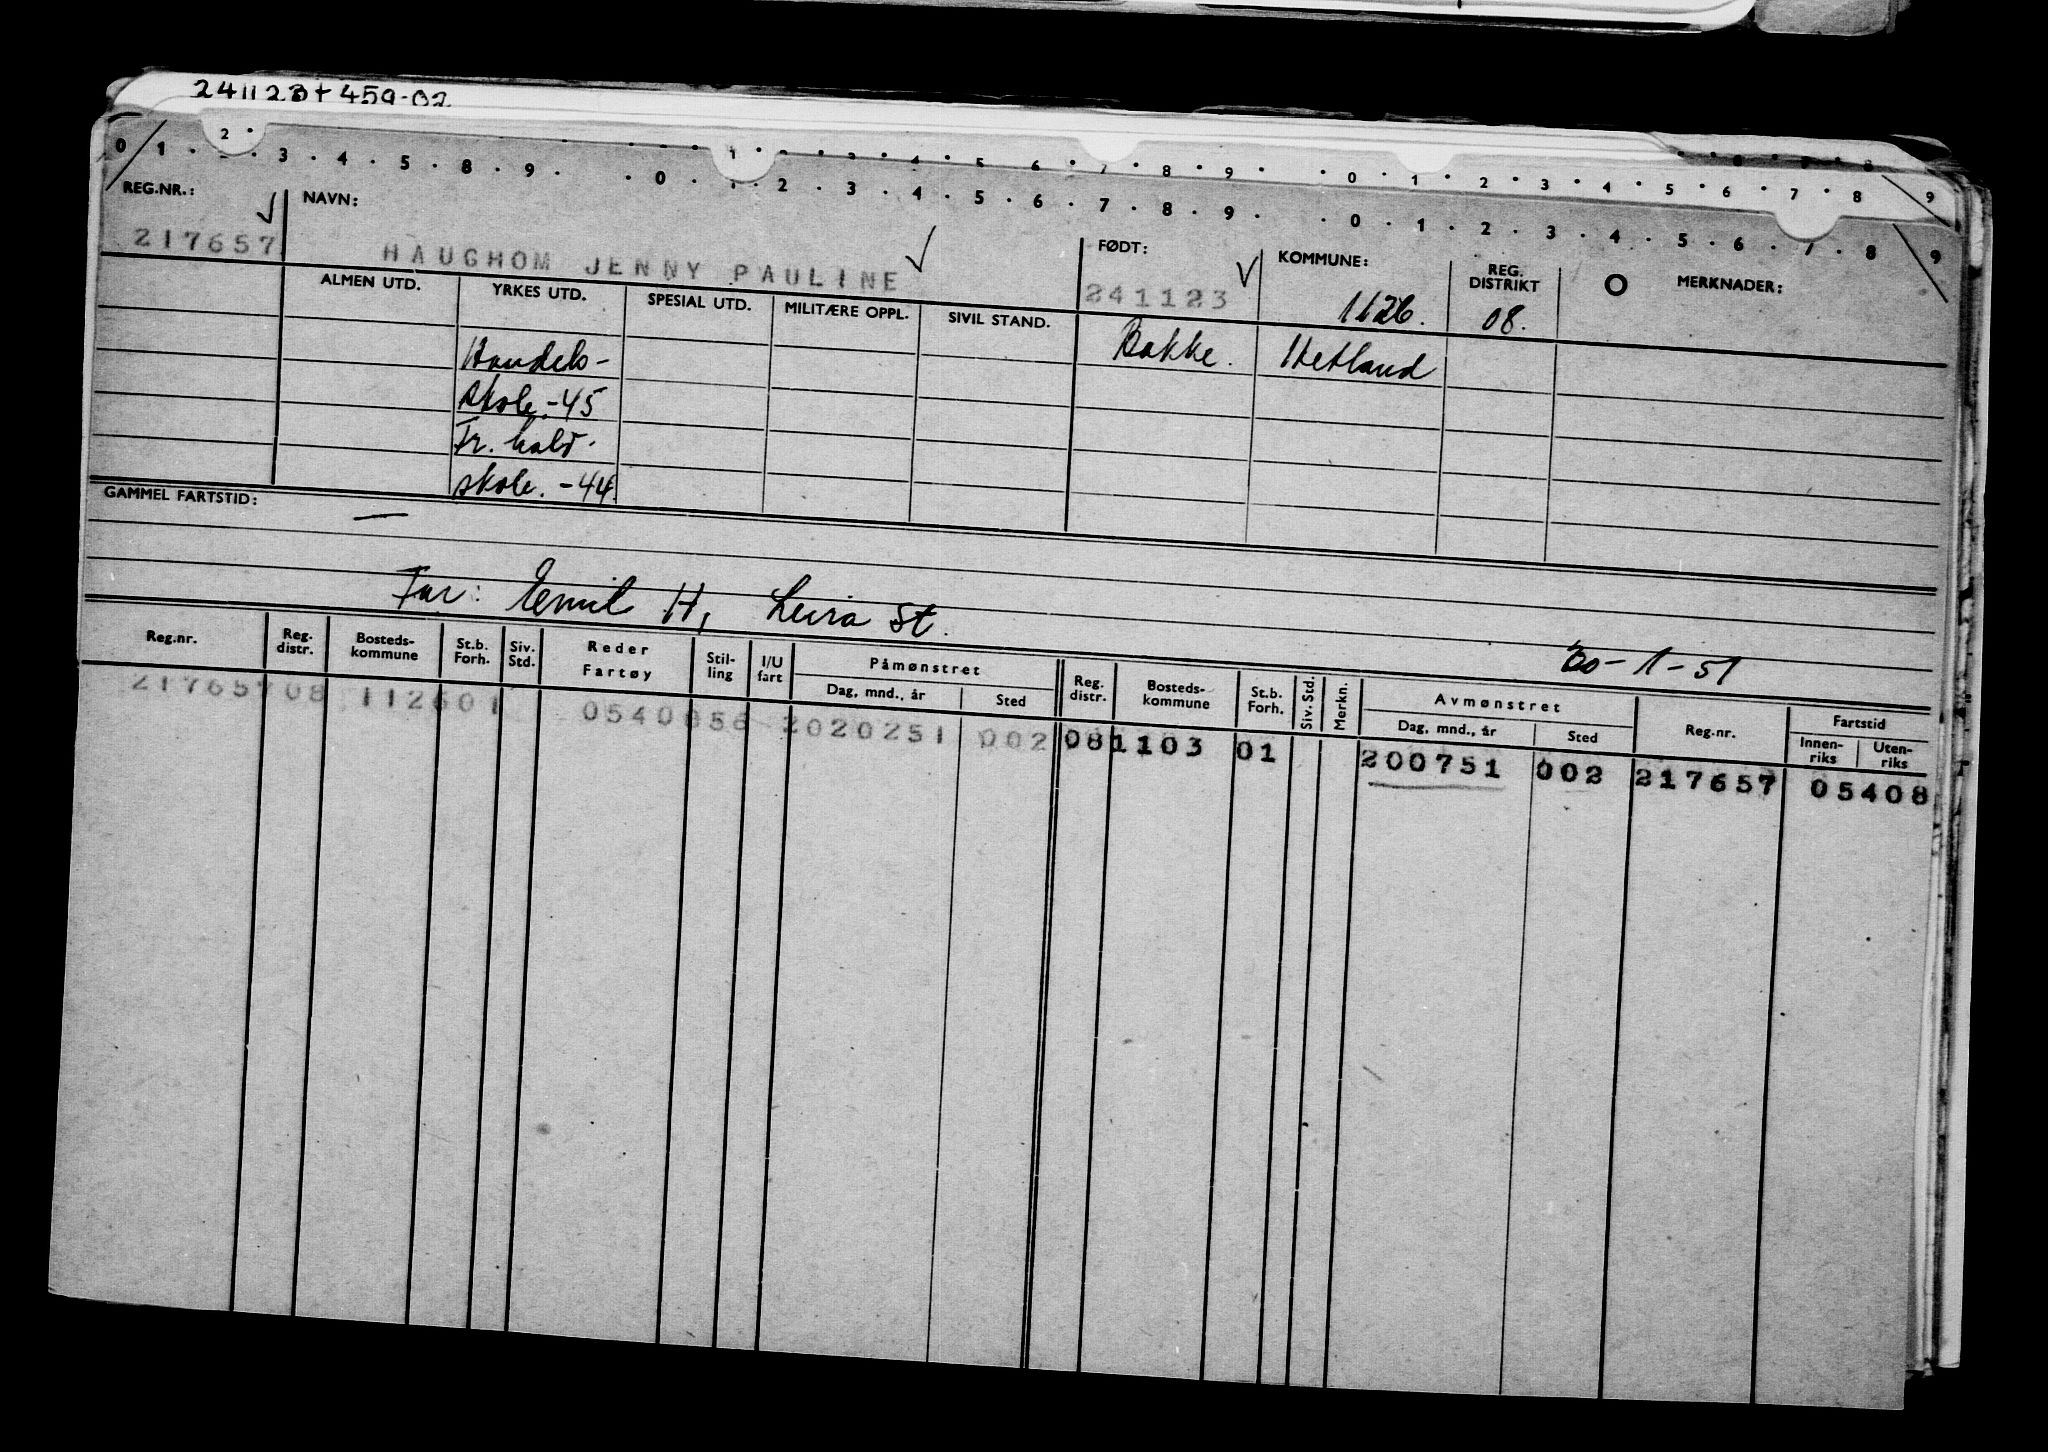 241123+459-02
0 1 . 2 . 3 . 4 . 5 . 8 . 9 . . 0 . 1 . 2 . 3 . 4 . 5 . 6 . 7 . 8 . 9 . . 0 . 1 . 2 . 3 . 4 . 5 . 6 . 7 . 8 . 9
REG.NR.: NAVN: FØDT: KOMMUNE: REG. DISTRIKT MERKNADER:
217657 HAUGHOM JENNY PAULINE 241123 1126. 08.
ALMEN UTD. YRKES UTD. SPESIAL UTD. MILITÆRE OPPL. SIVIL STAND.
Handels- Bakke. Hetland
skole.-45
Fr. hald.
skole. -44.
GAMMEL FARTSTID:
—
Far: Emil H, Leira St.
30-1-51
Reg.nr. Reg. distr. Bosteds- kommune St.b. Forh. Siv. Std. Reder Fartøy Stil- ling I/U fart Påmønstret Dag, mnd., år Sted Reg. distr. Bosteds- kommune St.b. Forh. Siv. Std. Merkn. Avmønstret Dag, mnd., år Sted Reg.nr. Fartstid Innen- riks Uten- riks
217657 08 1126 01 0540856 2020251 002 08 1103 01 200751 002 217657 05408